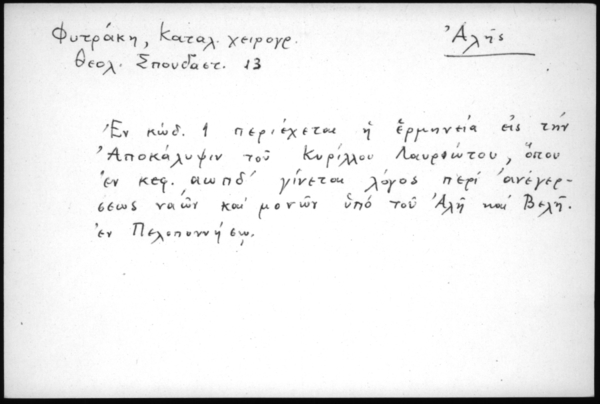 Φυτράκη, Καταλ. χειρογρ.
Θεολ. Σπουδαστ. 13
Ἀλῆς
Ἐν κώδ. 1 περιέχεται ἡ ἑρμηνεία εἰς τὴν
Ἀποκάλυψιν τοῦ Κυρίλλου Λαυριώτου, ὅπου
ἐν κεφ. αωπδ' γίνεται λόγος περί ἀνεγέρ-
σεως ναῶν καί μονῶν ὑπό τοῦ Ἀλῆ καί Βελῆ.
ἐν Πελοποννήσῳ.